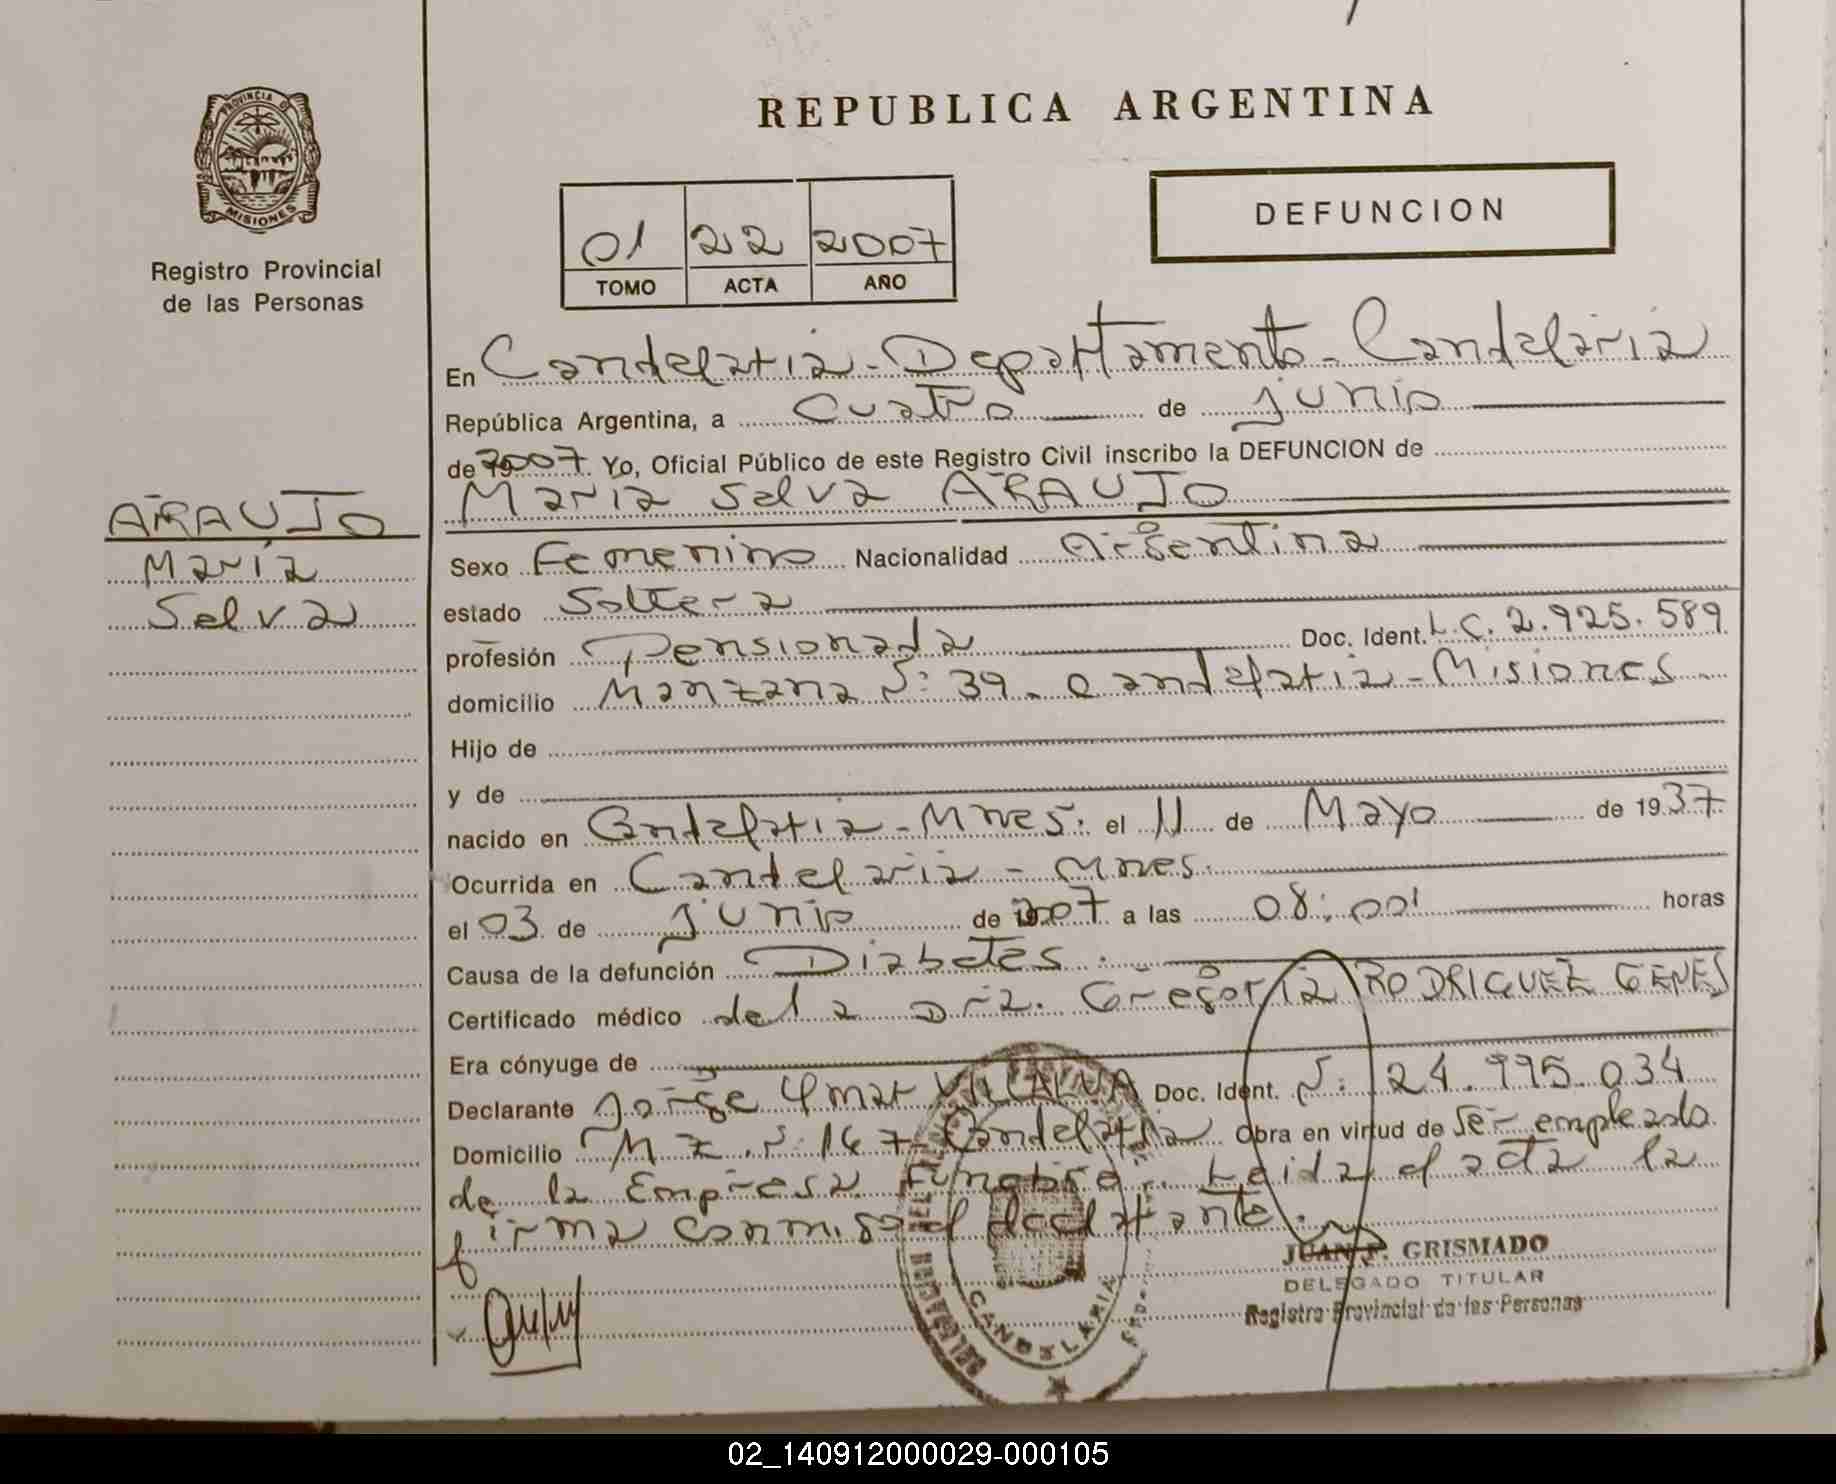 PROVINCIA DE
MISIONES
Registro Provincial
de las Personas
ARAUJO
María
Selva
REPUBLICA ARGENTINA
DEFUNCION
01 22 2007
TOMO ACTA AÑO
En Candelaria - Departamento - Candelaria
República Argentina, a cuatro de junio
de 2007 Yo, Oficial Público de este Registro Civil inscribo la DEFUNCION de
María Selva ARAUJO
Sexo Femenino Nacionalidad Argentina
estado Soltera
profesión Pensionada Doc. Ident. L.C. 2.925.589
domicilio Manzana Nº: 39 - Candelaria - Misiones
Hijo de
y de
nacido en Candelaria - Mnes. el 11 de Mayo de 1937
Ocurrida en Candelaria - Mnes.
el 03 de junio de 2007 a las 08:00' horas
Causa de la defunción Diabetes.
Certificado médico de la Dra. Gregoria RODRIGUEZ GENES
Era cónyuge de
Declarante Jorge Omar VILLALVA Doc. Ident. Nº: 24.995.034
Domicilio Mz. Nº: 147 Candelaria Obra en virtud de ser empleado
de la Empresa Funebre. Leida el acta la
firma conmigo el declarante.
JUAN F. GRISMADO
DELEGADO TITULAR
Registro Provincial de las Personas
CANDELARIA
02_140912000029-000105